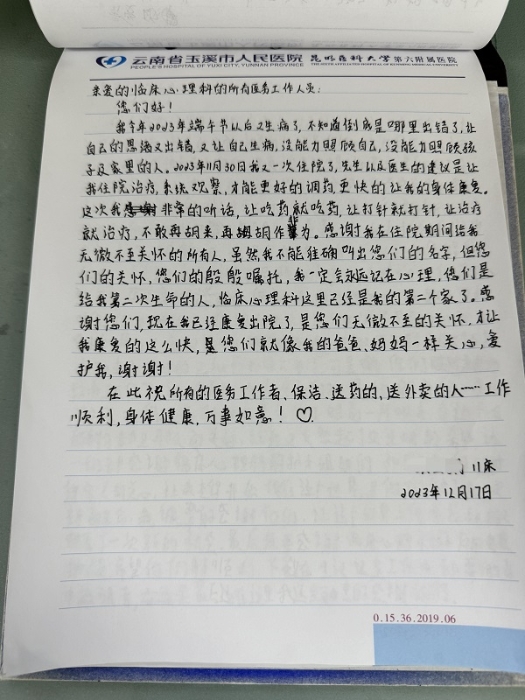 云南省玉溪市人民医院 昆明医科大学第六附属医院
PEOPLE'S HOSPITAL OF YUXI CITY, YUNNAN PROVINCE
亲爱的临床心理科的所有医务工作人员:
您们好!
我今年2023年端午节以后又生病了,不知道倒底是哪里出错了,让
自己的思绪又出错,又让自己生病,没能力照顾自己,没能力照顾孩
子及家里的人。2023年11月30日我又一次住院了,先生以及医生的建议是让
我住院治疗,系统观察,才能更好的调药更快的让我的身体康复。
这次我非常的听话,让吃药就吃药,让打针就打针,让治疗
就治疗,不敢再胡来,再胡作非为。感谢我在住院期间给我
无微不至关怀的所有人,虽然我不能准确叫出您们的名字,但您
们的关怀,您们的殷殷嘱托,我一定会永远记在心理,您们是
给我第二次生命的人,临床心理科这里已经是我的第二个家了。感
谢您们,现在我已经康复出院了,是您们无微不至的关怀,才让
我康复的这么快,是您们就像我的爸爸、妈妈一样关心,爱
护我,谢谢!
在此祝所有的医务工作者、保洁、送药的、送外卖的人……工作
顺利,身体健康,万事如意!♡
川床
2023年12月17日
0.15.36.2019.06